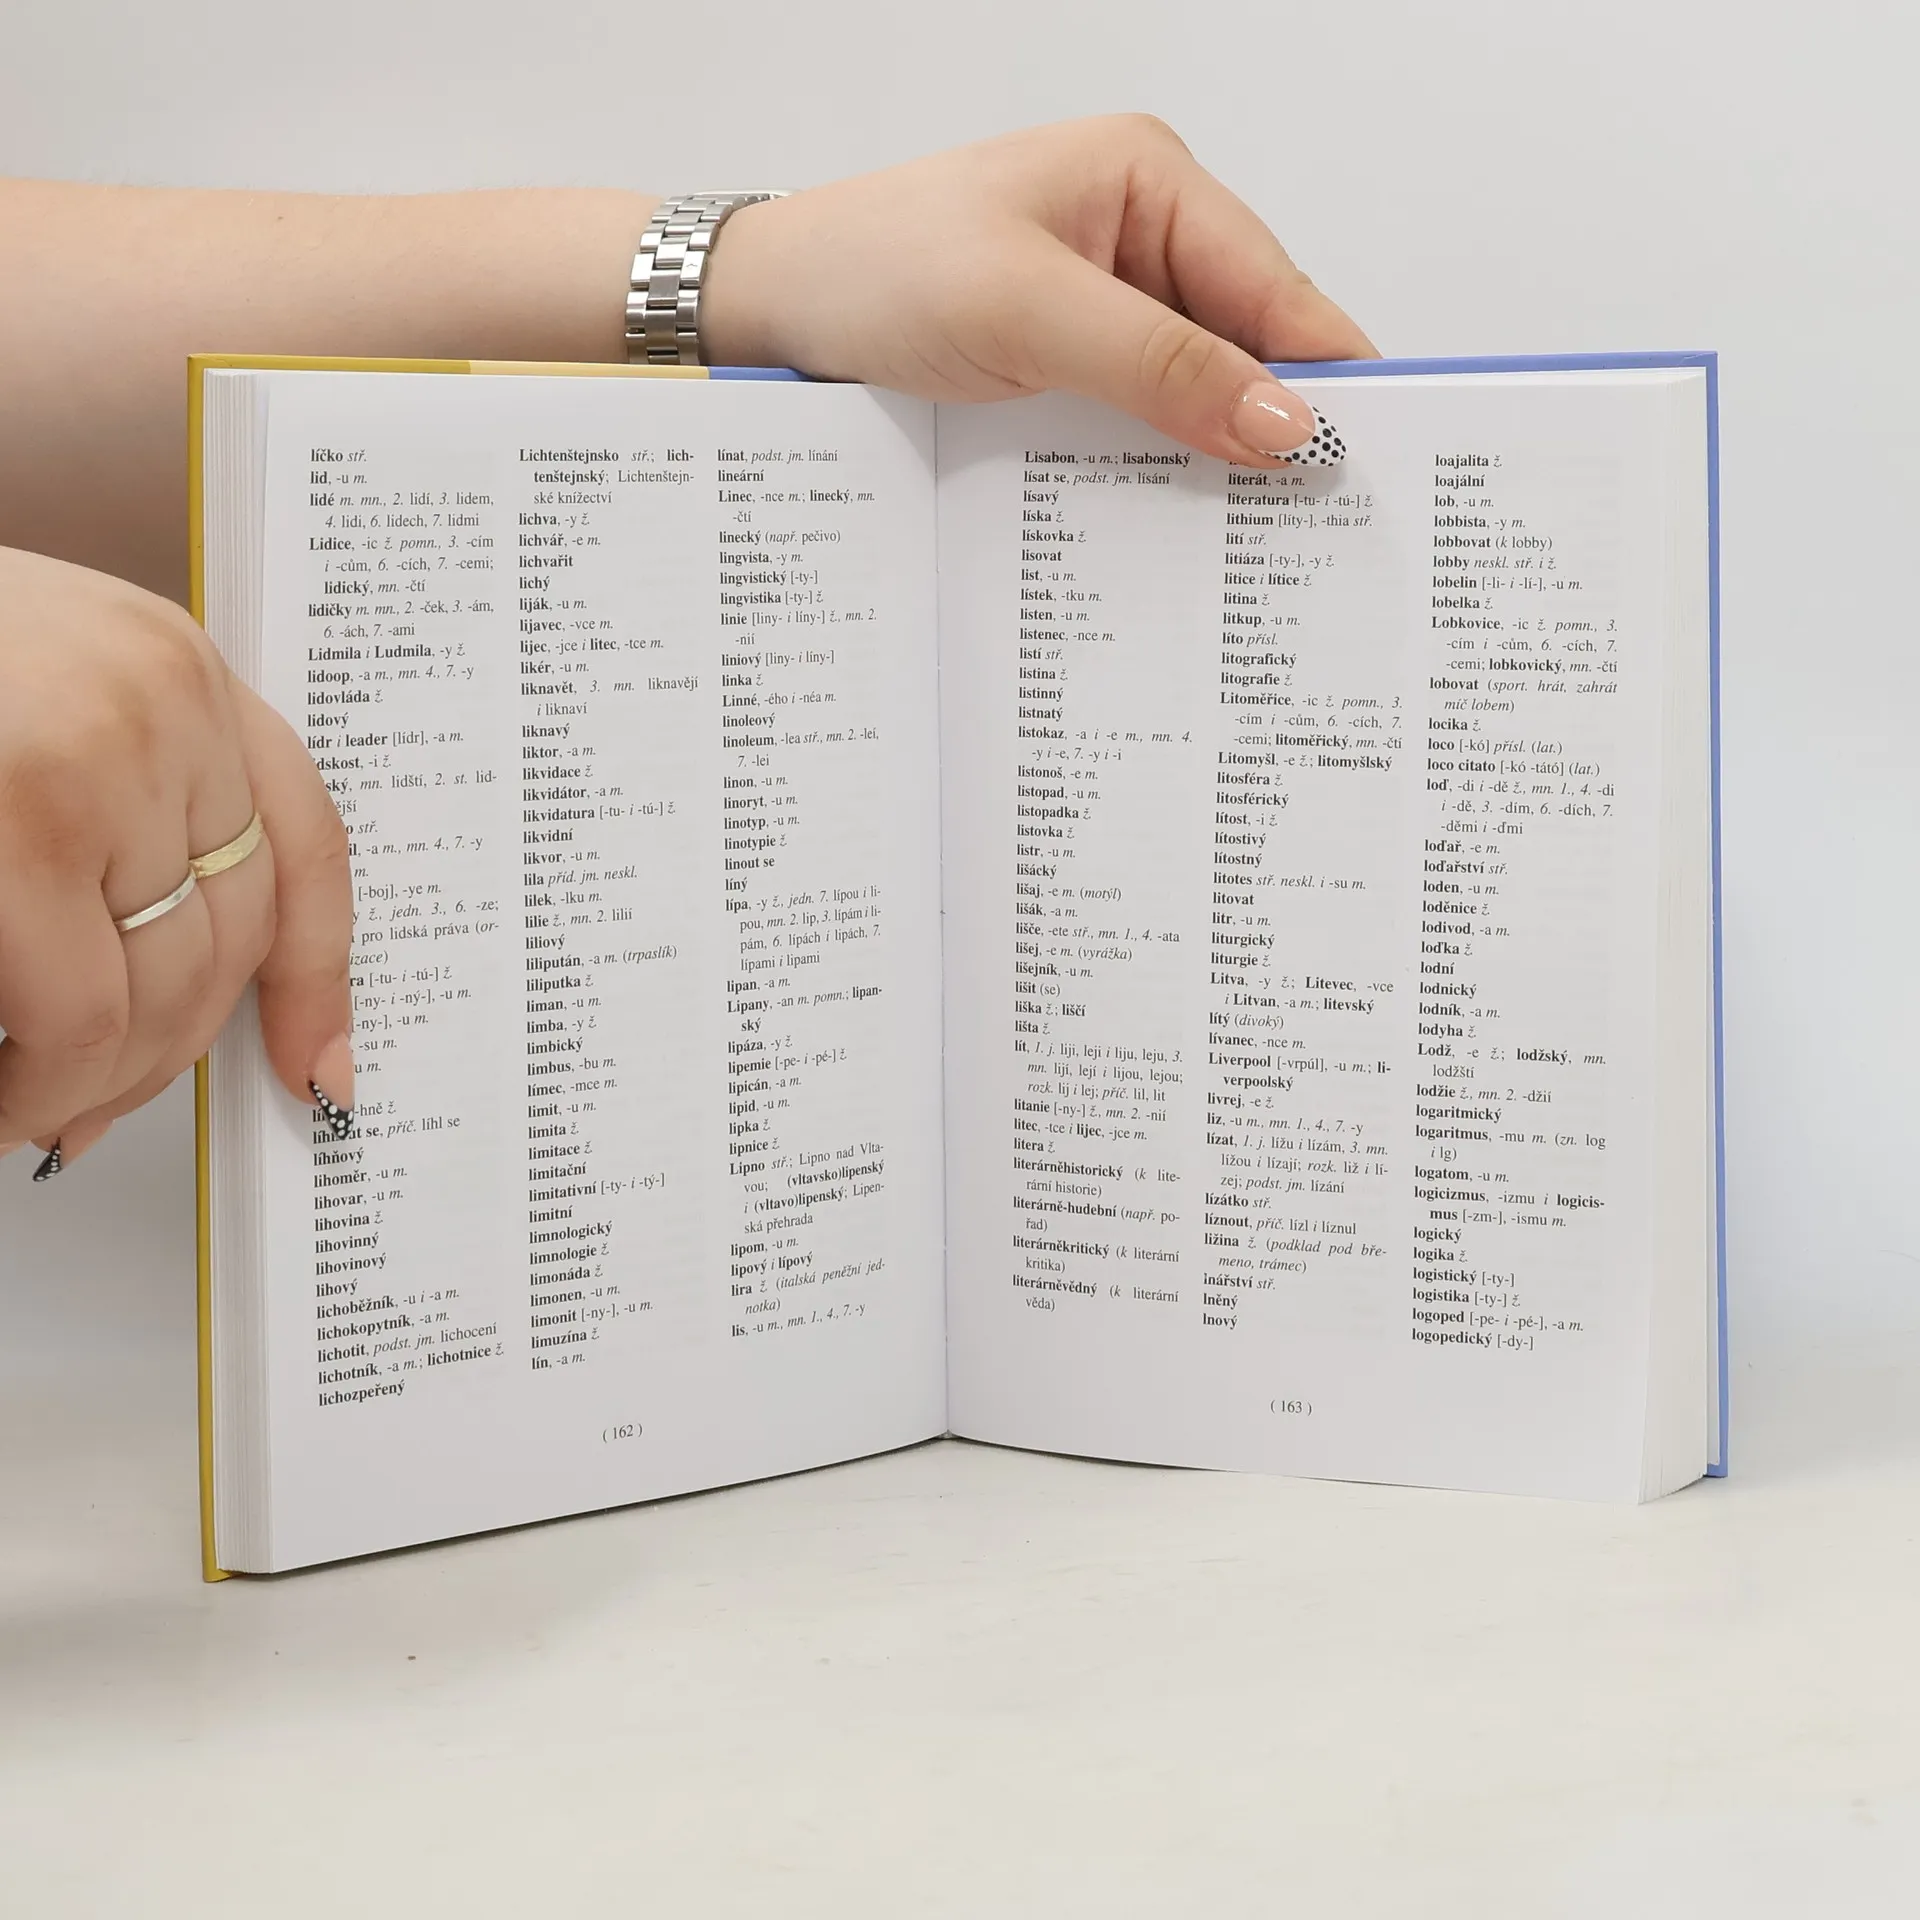 líčko stř.
lid, -u m.
lidé m. mn., 2. lidí, 3. lidem,
4. lidi, 6. lidech, 7. lidmi
Lidice, -ic ž. pomn., 3. -cím
i -cům, 6. -cích, 7. -cemi;
lidický, mn. -čtí
lidičky m. mn., 2. -ček, 3. -ám,
6. -ách, 7. -ami
Lidmila i Ludmila, -y ž.
lidoop, -a m., mn. 4., 7. -y
lidovláda ž.
lidový
lídr i leader [lídr], -a m.
-i ž.
mn. lidští, 2. st. lid-
stř.
-a m., mn. 4., 7. -y
m.
[-boj], -ye m.
ž., jedn. 3., 6. -ze;
pro lidská práva (or-
[-tu- i -tú-] ž.
[-ny- i -ný-], -u m.
[-ny-], -u m.
-su m.
m.
-hně ž.
se, příč. líhl se
líhňový
lihoměr, -u m.
lihovar, -u m.
lihovina ž.
lihovinný
lihovinový
lihový
lichoběžník, -u i -a m.
lichokopytník, -a m.
lichotit, podst. jm. lichocení
lichotník, -a m.; lichotnice ž.
lichozpeřený
Lichtenštejnsko stř.; lich-
tenštejnský; Lichtenštejn-
ské knížectví
lichva, -y ž.
lichvář, -e m.
lichvařit
lichý
liják, -u m.
lijavec, -vce m.
lijec, -jce i litec, -tce m.
likér, -u m.
liknavět, 3. mn. liknavějí
i liknaví
liknavý
liktor, -a m.
likvidace ž.
likvidátor, -a m.
likvidatura [-tu- i -tú-] ž.
likvidní
likvor, -u m.
lila příd. jm. neskl.
lilek, -lku m.
lilie ž., mn. 2. lilií
liliový
lilipután, -a m. (trpaslík)
liliputka ž.
liman, -u m.
limba, -y ž.
limbický
limbus, -bu m.
límec, -mce m.
limit, -u m.
limita ž.
limitace ž.
limitační
limitativní [-ty- i -tý-]
limitní
limnologický
limnologie ž.
limonáda ž.
limonen, -u m.
limonit [-ny-], -u m.
limuzína ž.
lín, -a m.
línat, podst. jm. línání
lineární
Linec, -nce m.; linecký, mn.
-čtí
linecký (např. pečivo)
lingvista, -y m.
lingvistický [-ty-]
lingvistika [-ty-] ž.
linie [liny- i líny-] ž., mn. 2.
-nií
liniový [liny- i líny-]
linka ž.
Linné, -ého i -néa m.
linoleový
linoleum, -lea stř., mn. 2. -leí,
7. -lei
linon, -u m.
linoryt, -u m.
linotyp, -u m.
linotypie ž.
linout se
líný
lípa, -y ž., jedn. 7. lípou i li-
pou, mn. 2. lip, 3. lípám i li-
pám, 6. lípách i lipách, 7.
lípami i lipami
lipan, -a m.
Lipany, -an m. pomn.; lipan-
ský
lipáza, -y ž.
lipemie [-pe- i -pé-] ž.
lipicán, -a m.
lipid, -u m.
lipka ž.
lipnice ž.
Lipno stř.; Lipno nad Vlta-
vou; (vltavsko)lipenský
i (vltavo)lipenský; Lipen-
ská přehrada
lipom, -u m.
lipový i lípový
lira ž. (italská peněžní jed-
notka)
lis, -u m., mn. 1., 4., 7. -y
( 162 )
Lisabon, -u m.; lisabonský
lísat se, podst. jm. lísání
lísavý
líska ž.
lískovka ž.
lisovat
list, -u m.
lístek, -tku m.
listen, -u m.
listenec, -nce m.
listí stř.
listina ž.
listinný
listnatý
listokaz, -a i -e m., mn. 4.
-y i -e, 7. -y i -i
listonoš, -e m.
listopad, -u m.
listopadka ž.
listovka ž.
listr, -u m.
lišácký
lišaj, -e m. (motýl)
lišák, -a m.
lišče, -ete stř., mn. 1., 4. -ata
lišej, -e m. (vyrážka)
lišejník, -u m.
lišit (se)
liška ž.; liščí
lišta ž.
lít, 1. j. liji, leji i liju, leju, 3.
mn. lijí, lejí i lijou, lejou;
rozk. lij i lej; příč. lil, lit
litanie [-ny-] ž., mn. 2. -nií
litec, -tce i lijec, -jce m.
litera ž.
literárněhistorický (k lite-
rární historie)
literárně-hudební (např. po-
řad)
literárněkritický (k literární
kritika)
literárněvědný (k literární
věda)
literát, -a m.
literatura [-tu- i -tú-] ž.
lithium [líty-], -thia stř.
lití stř.
litiáza [-ty-], -y ž.
litice i lítice ž.
litina ž.
litkup, -u m.
líto přísl.
litografický
litografie ž.
Litoměřice, -ic ž. pomn., 3.
-cím i -cům, 6. -cích, 7.
-cemi; litoměřický, mn. -čtí
Litomyšl, -e ž.; litomyšlský
litosféra ž.
litosférický
lítost, -i ž.
lítostivý
lítostný
litotes stř. neskl. i -su m.
litovat
litr, -u m.
liturgický
liturgie ž.
Litva, -y ž.; Litevec, -vce
i Litvan, -a m.; litevský
lítý (divoký)
lívanec, -nce m.
Liverpool [-vrpúl], -u m.; li-
verpoolský
livrej, -e ž.
liz, -u m., mn. 1., 4., 7. -y
lízat, 1. j. lížu i lízám, 3. mn.
lížou i lízají; rozk. liž i lí-
zej; podst. jm. lízání
lízátko stř.
líznout, příč. lízl i líznul
ližina ž. (podklad pod bře-
meno, trámec)
lnářství stř.
lněný
lnový
loajalita ž.
loajální
lob, -u m.
lobbista, -y m.
lobbovat (k lobby)
lobby neskl. stř. i ž.
lobelin [-li- i -lí-], -u m.
lobelka ž.
Lobkovice, -ic ž. pomn., 3.
-cím i -cům, 6. -cích, 7.
-cemi; lobkovický, mn. -čtí
lobovat (sport. hrát, zahrát
míč lobem)
locika ž.
loco [-kó] přísl. (lat.)
loco citato [-kó -tátó] (lat.)
loď, -di i -dě ž., mn. 1., 4. -di
i -dě, 3. -dím, 6. -dích, 7.
-děmi i -ďmi
loďař, -e m.
loďařství stř.
loden, -u m.
loděnice ž.
lodivod, -a m.
loďka ž.
lodní
lodnický
lodník, -a m.
lodyha ž.
Lodž, -e ž.; lodžský, mn.
lodžští
lodžie ž., mn. 2. -džií
logaritmický
logaritmus, -mu m. (zn. log
i lg)
logatom, -u m.
logicizmus, -izmu i logicis-
mus [-zm-], -ismu m.
logický
logika ž.
logistický [-ty-]
logistika [-ty-] ž.
logoped [-pe- i -pé-], -a m.
logopedický [-dy-]
( 163 )